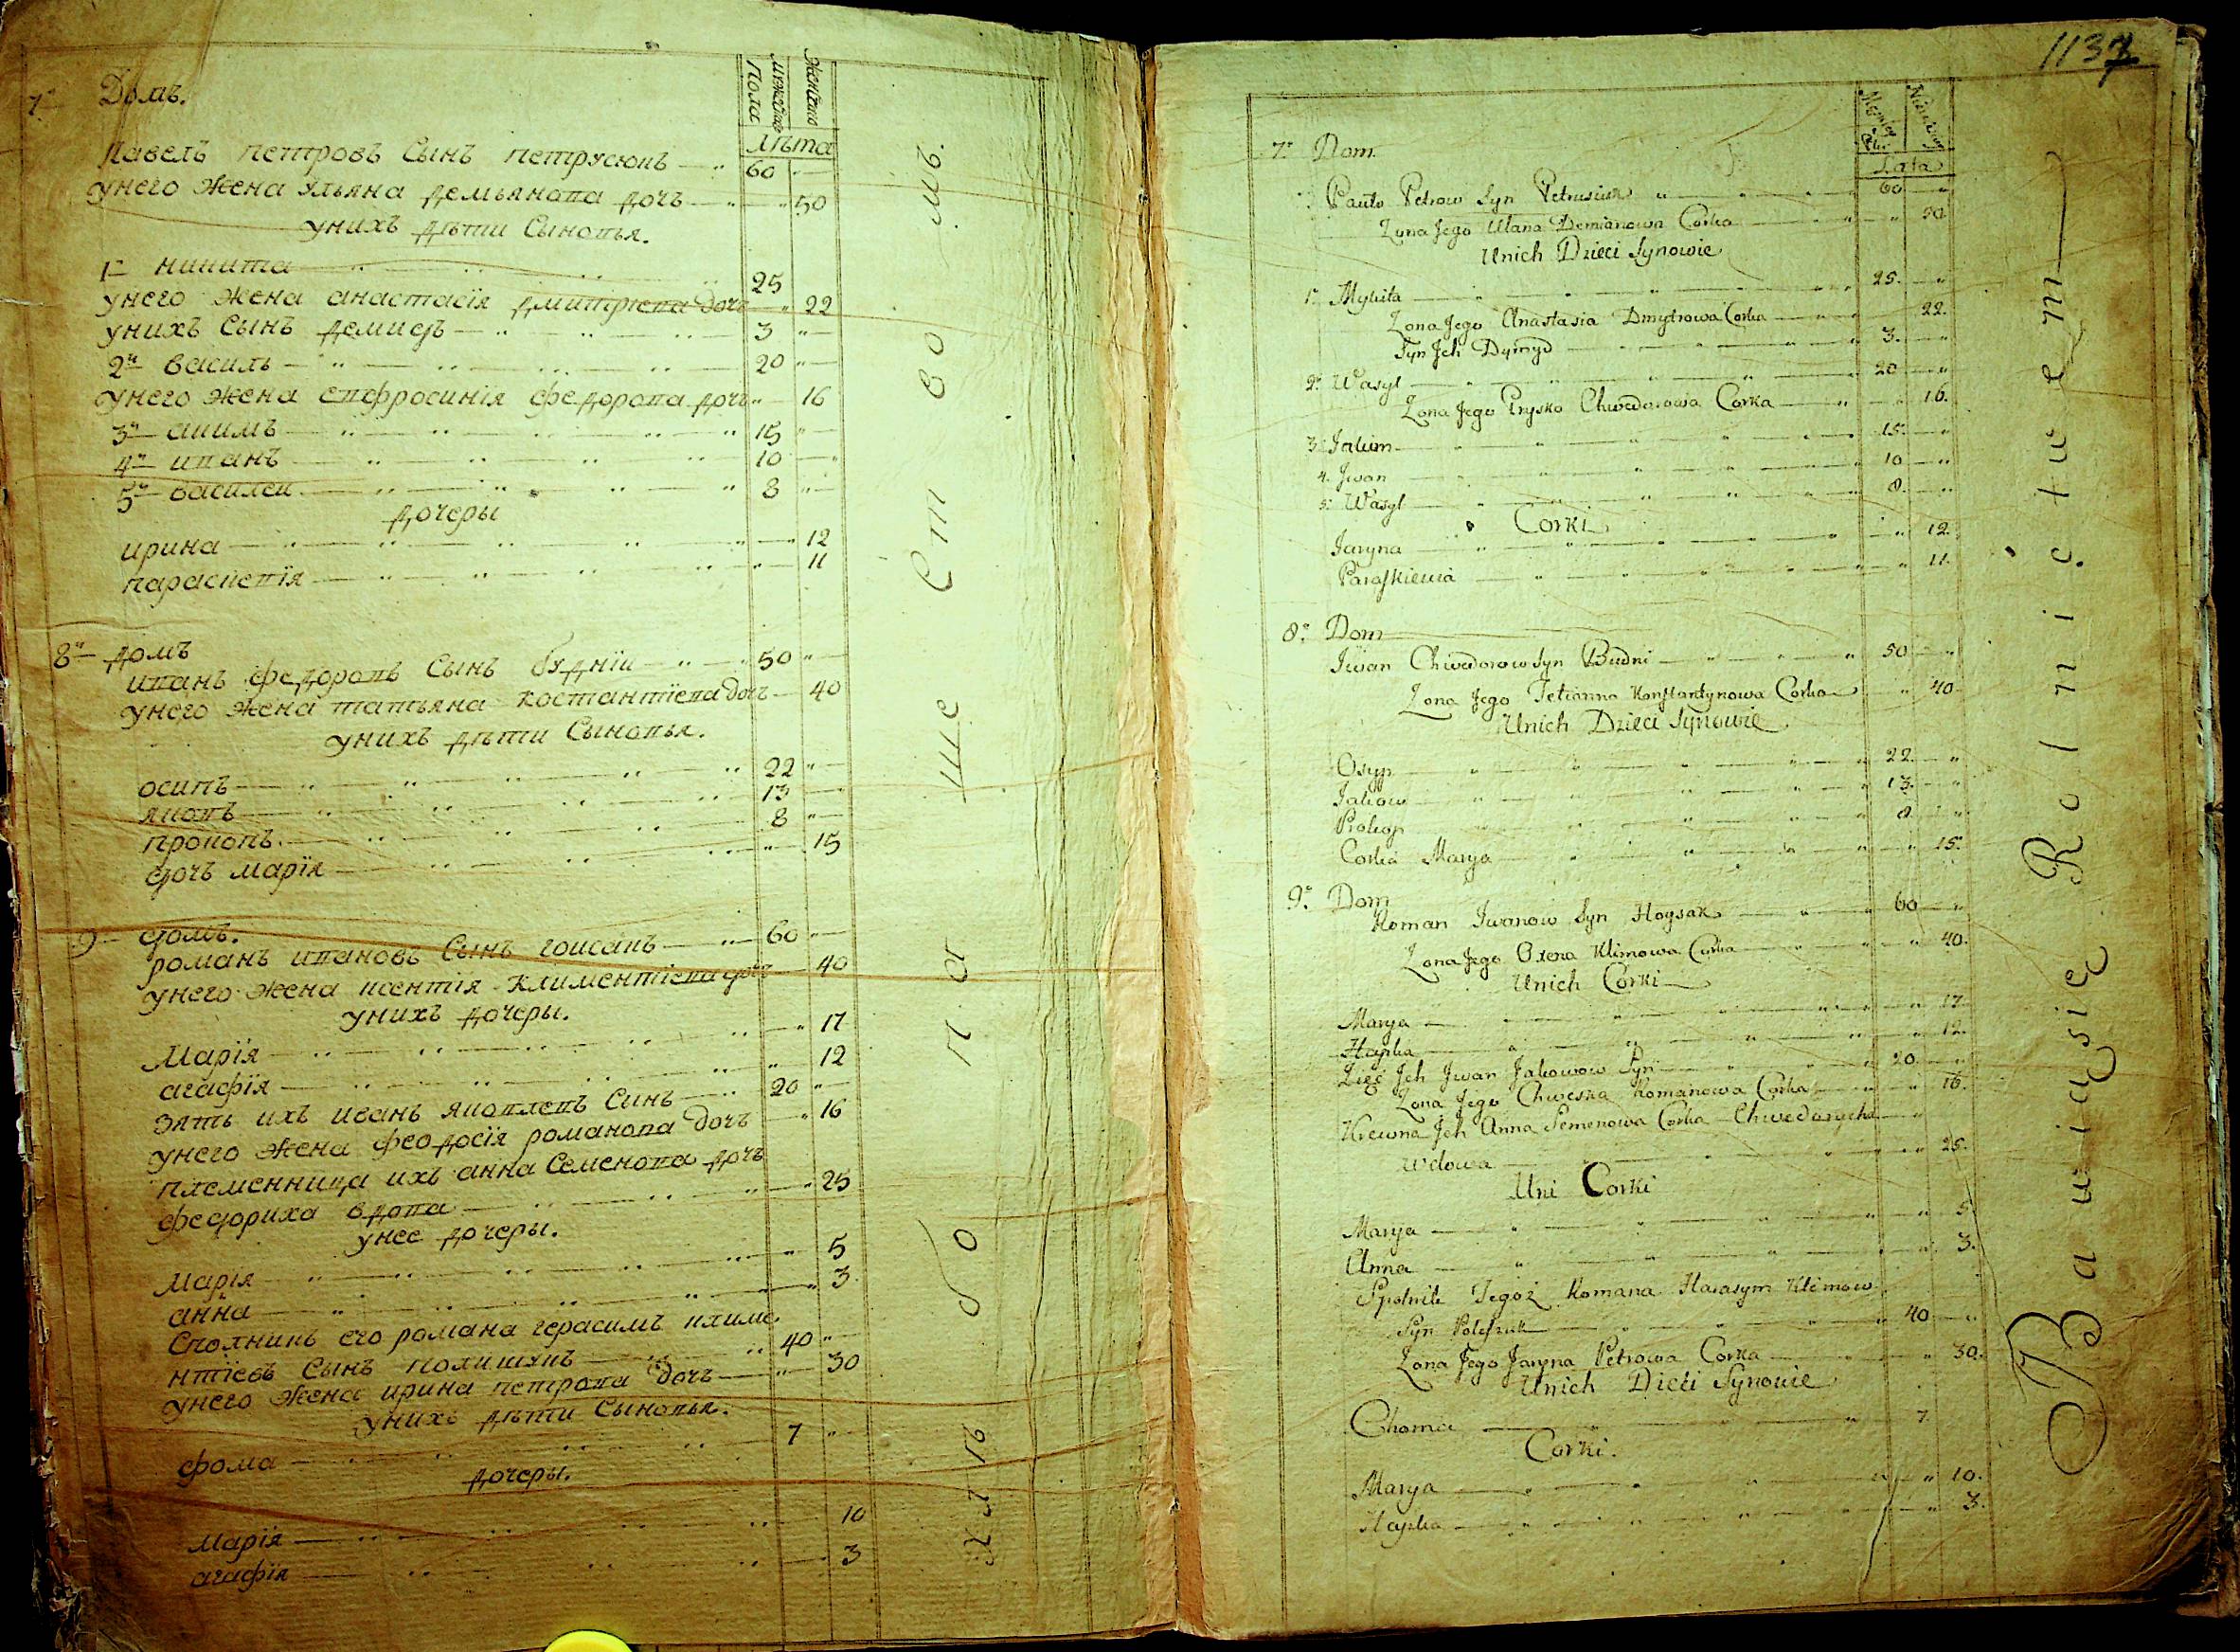 7. Домъ.
Пола
мужеска
Женска
лѣта
Павелъ петровъ Сынъ петрусюкъ 60
унего жена Ульяна демьянова дочь 50
унихъ дѣти Сыновья.
1й никита 25
унего жена анастасія дмитріева дочь 22
унихъ Сынъ демидъ 3
2й василь 20
унего жена евфросинія федорова дочь 16
3й акимъ 15
4й иванъ 10
5й василеи 8
дочеры
ирина 12
параскевія 11
8й домъ
иванъ федоровъ Сынъ будніи 50
унего жена татьяна костантіева дочь 40
унихъ дѣти Сыновья.
осипъ 22
яковъ 13
прокопъ 8
дочь марія 15
9 домъ.
романъ ивановъ Сынъ гоисакъ 60
унего жена ксентія климентіева дочь 40
унихъ дочеры.
Марія 17
агафія 12
зять ихъ иванъ яковлевъ Синъ 20
унего жена феодосія романова дочь 16
племенница ихъ анна Семенова дочь
федориха вдова 25
унее дочеры.
марія 5
анна 3
Сполникъ его романа герасимъ климе
нтіевъ Сынъ полишукъ 40
унего жена ирина петрова дочь 30
унихъ дѣти Сыновья.
фома 7
дочеры.
марія 10
агафія 3
хлѣбопашество мъ.
1137
7. Dom.
Lata
Pawło Petrow Syn Petrusiuk 60
Zona Jego Ulana Demianowa Corka 50
Unich Dzieci Synowie
1. Mykita 25.
Zona Jego Anastasia Dmytrowa Corka 22.
Syn Jch Dymyd 3.
2. Wasyl 20
Zona Jego Prysko Chwedorowa Corka 16.
3. Jakim 15.
4. Jwan 10
5. Wasyl 8.
Corki
Jaryna 12.
Paraskiewia 11.
8. Dom
Jwan Chwedorow Syn Budni 50
Zona Jego Tetianna Konstantynowa Corka 40
Unich Dzieci Synowie
Osyp 22.
Jakow 13.
Prokop 8
Corka Marya 15.
9. Dom
Roman Jwanow Syn Hoysak 60
Zona Jego Oxena Klimowa Corka 40.
Unich Corki
Marya 17
Hapka 12.
Zięć Jch Jwan Jakowow Syn 20.
Zona Jego Chweska Romanowa Corka 16.
Krewna Jch Anna Semenowa Corka Chwedorycha
Wdowa 25.
Uni Corki
Marya 5
Anna 3.
Spolnik Tegoż Romana Harasym Klimow
Syn Poleszuk 40
Zona Jego Jaryna Petrowa Corka 30.
Unich Dieci Synowie
Choma 7.
Corki.
Marya 10.
Hapka 3.
Bawiąsię Rolnictwem